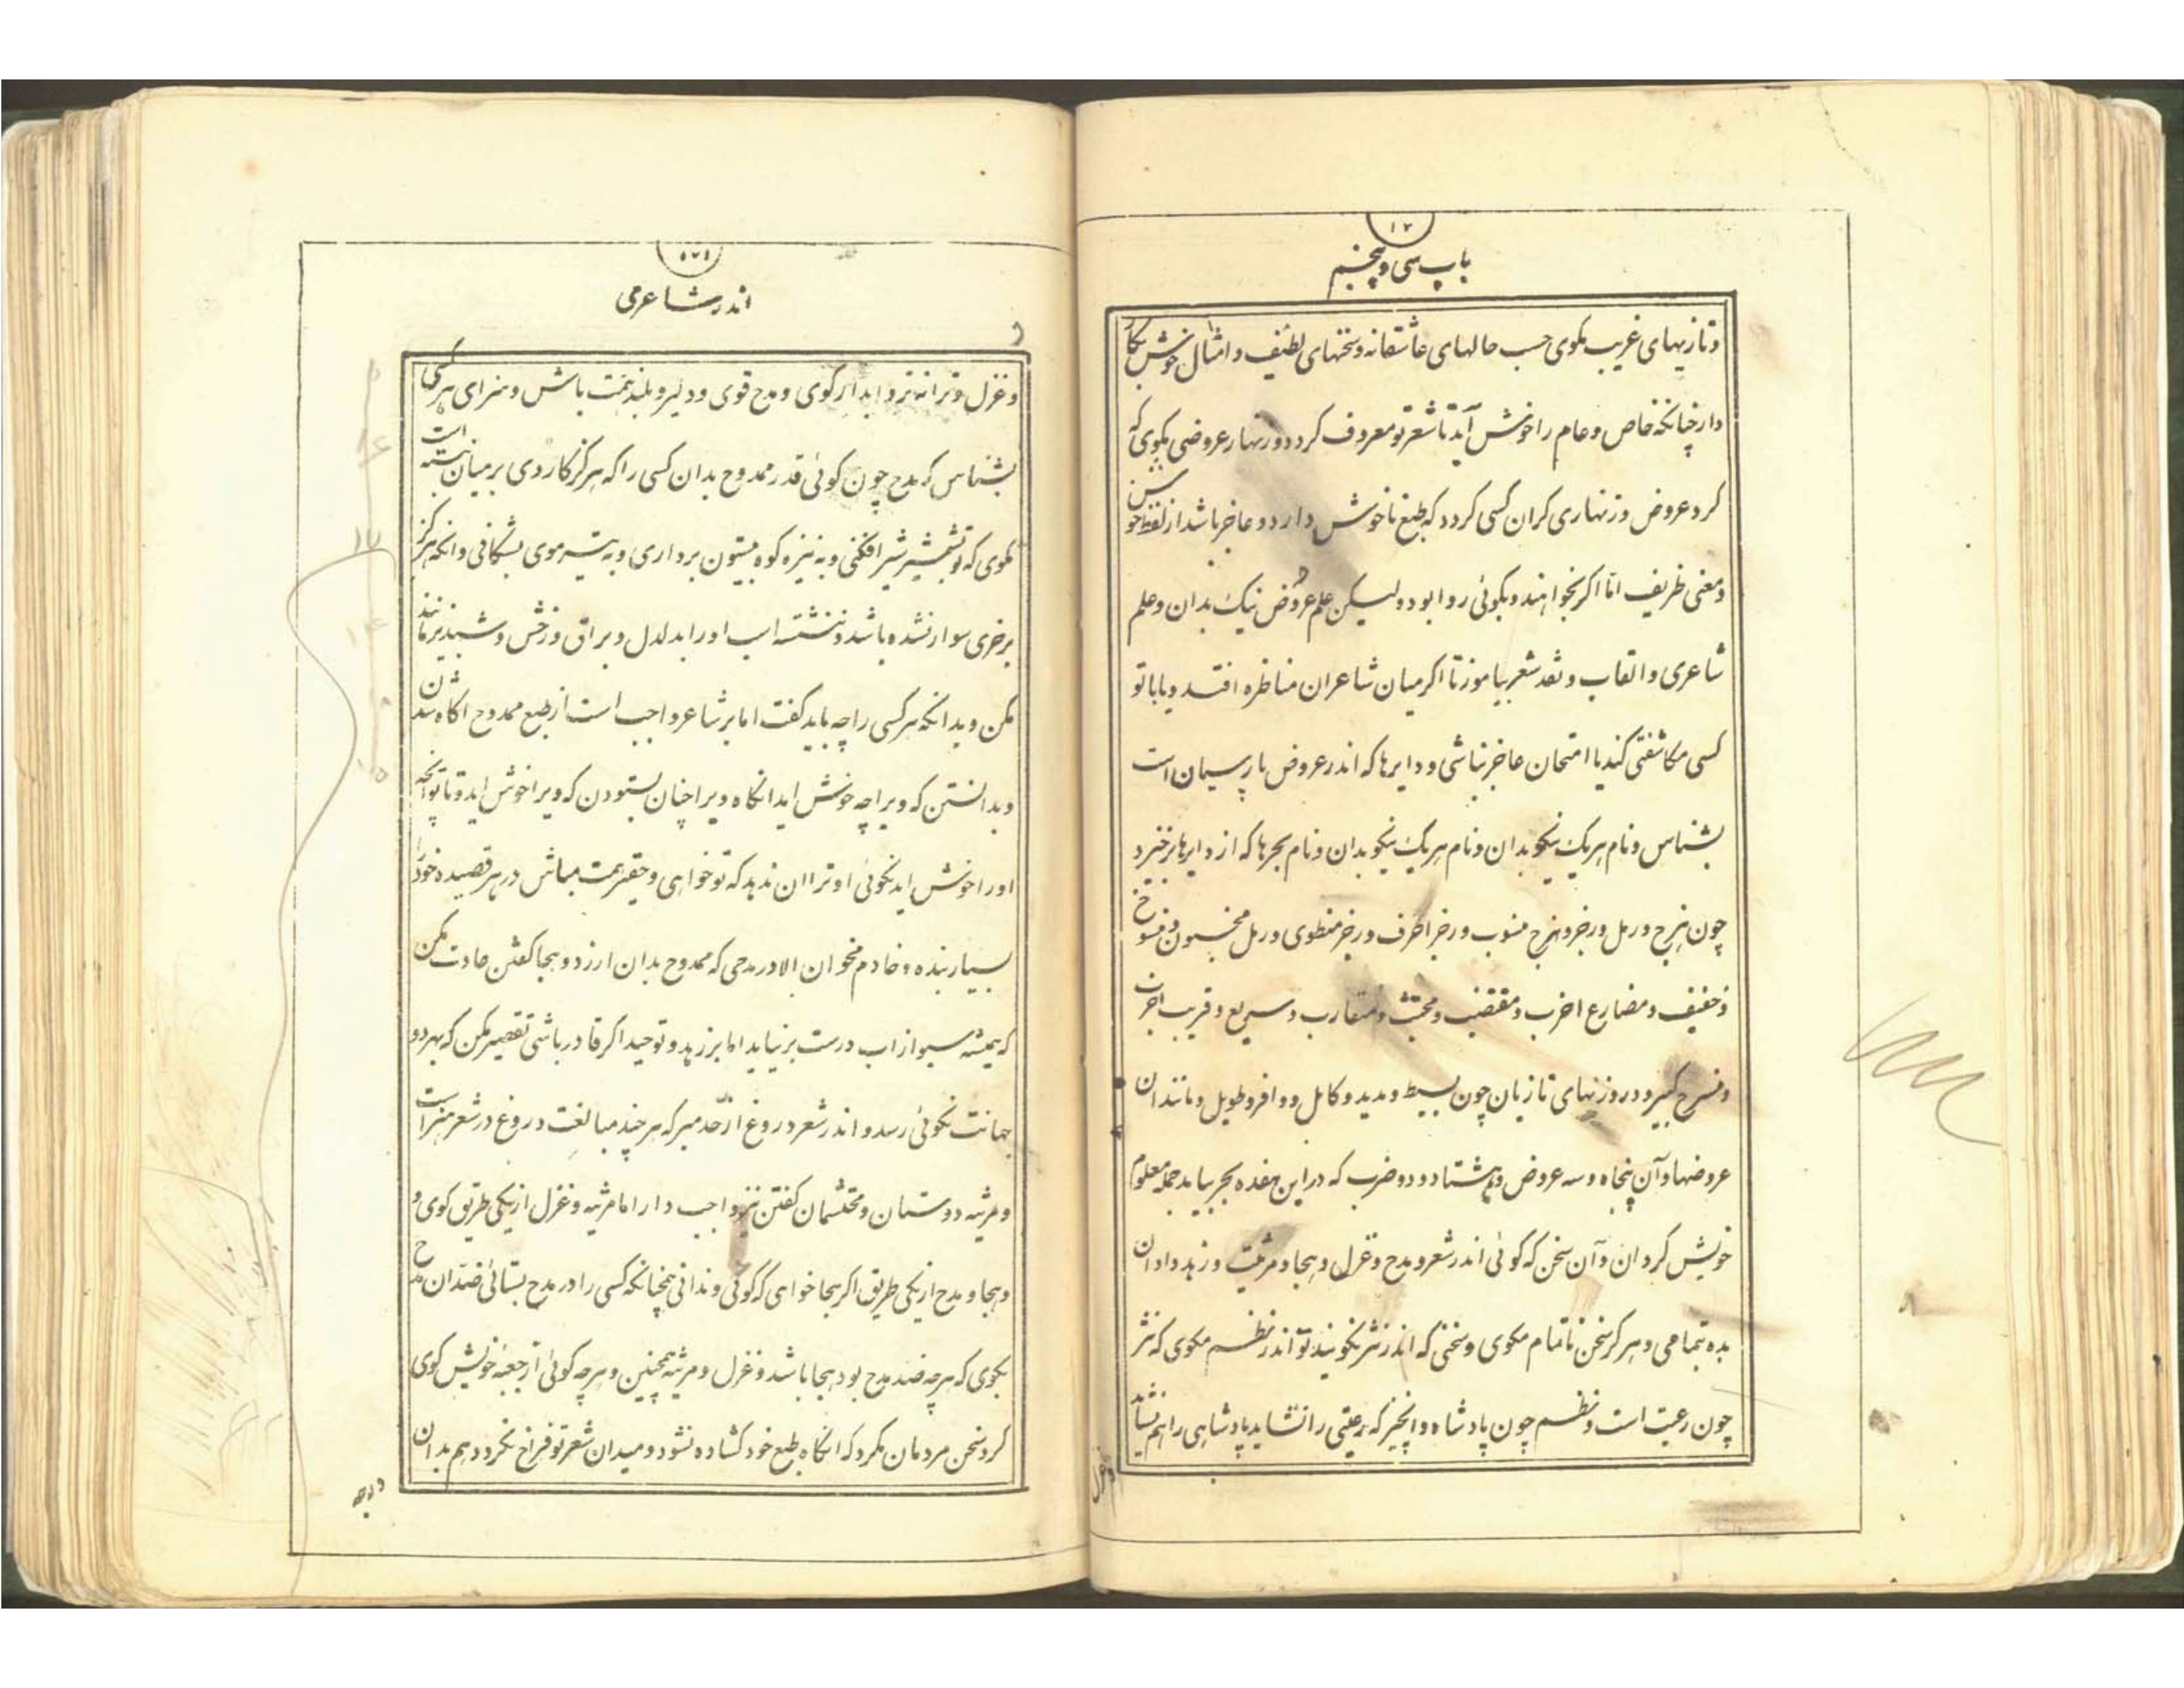 ۱۷
باب سی و پنجم
و تازیهای غریب مگوی حسب حالهای عاشقانه و سخنهای لطیف و امثال خوش بکار
دار چنانکه خاص و عام را خوش آید تا شعر تو معروف کردد و زنهار عروضی مگوی که
کرد عروض وزنهاری کران کسی کردد که طبع ناخوش دارد و عاجز باشد از لفظ خوش
و معنی ظریف اما اکر بخواهند و بگوئی روا بود ولیکن علم عروض نیک بدان و علم
شاعری و القاب و نقد شعر بیاموز تا اکر میان شاعران مناظره افتد و یا با تو
کسی مکاشفتی کند یا امتحان عاجز نباشی و دایرها که اندر عروض پارسیان است
بشناس و نام هریک نیکو بدان و نام هریک نیکو بدان و نام بحرها که از دایرها برخیزد
چون هزج و رمل و رجز و هزج منسوب و رجز اطرف و رجز منطوی و رمل مخبون و منسوخ
و خفیف و مضارع اخرب و مقتضب و مجتث و متقارب و سریع و قریب اخرب
و منسرح کبیر و در وزنهای تازیان چون بسیط و مدید و کامل و وافر و طویل و مانند ان
عروضها و آن پنجاه و سه عروض و هشتاد و دو ضرب که در این هفده بحر بیاید جمله معلوم
خویش کردان و آن سخن که کوئی اندر شعر و مدح و غزل و هجا و مرثیت و زهد داد ان
بده بتمامی و هرکز سخن ناتمام مکوی و سخنی که اندر نثر نکویند تو اندر نظم مکوی که نثر
چون رعیت است و نظم چون پادشاه و انچیز که رعیتی را نشاید پادشاهی را هم نشاید
و غزل
۱۷۱
اندر شاعری
و غزل و ترانه تر و ابدار کوی و مدح قوی و دلیر و بلند همت باش و سزای هر کسی
بشناس که مدح چون کوئی قدر ممدوح بدان کسی را که هرکز کاردی بر میان نبسته است
مگوی که تو بشمشیر شیر افکنی و به نیزه کوه بیستون برداری و به تیر موی بشکافی و انکه هرکز
بر خری سوار نشده باشد و ننشته اسب او را بدلدل و براق و رخش و شبدیز مانند
مکن و بدانکه هر کسی را چه باید کفت اما بر شاعر واجب است از طبع ممدوح اکاه شدن
و بدانستن که ویرا چه خوش اید انکاه ویرا چنان بستودن که ویرا خوش اید و تا تو انچه
او را خوش اید نکوئی او ترا ان ندهد که تو خواهی و حقیر همت مباش در هر قصیده خود را
بسیار بنده و خادم مخوان الا در مدحی که ممدوح بدان ارزد و هجا کفتن عادت مکن
که همیشه سبو از اب درست بر نیاید اما بر زهد و توحید اکر قادر باشی تقصیر مکن که بهر دو
جهانت نکوئی رسد و اندر شعر دروغ از حد مبر که هر چند مبالغت دروغ در شعر هنر است
و مرثیه دوستان و محتشمان کفتن نیز واجب دار اما مرثیه و غزل از یکی طریق کوی و
و هجا و مدح از یکی طریق اکر هجا خواهی که کوئی و ندانی همچنانکه کسی را در مدح بستائی ضد ان مدح
بگوی که هرچه ضد مدح بود هجا باشد و غزل و مرثیه همچنین و هرچه کوئی از جعبه خویش کوی
کرد سخن مردمان مکرد که انکاه طبع خود کشاده نشود و میدان شعر تو فراخ نکردد هم بدان
درجه